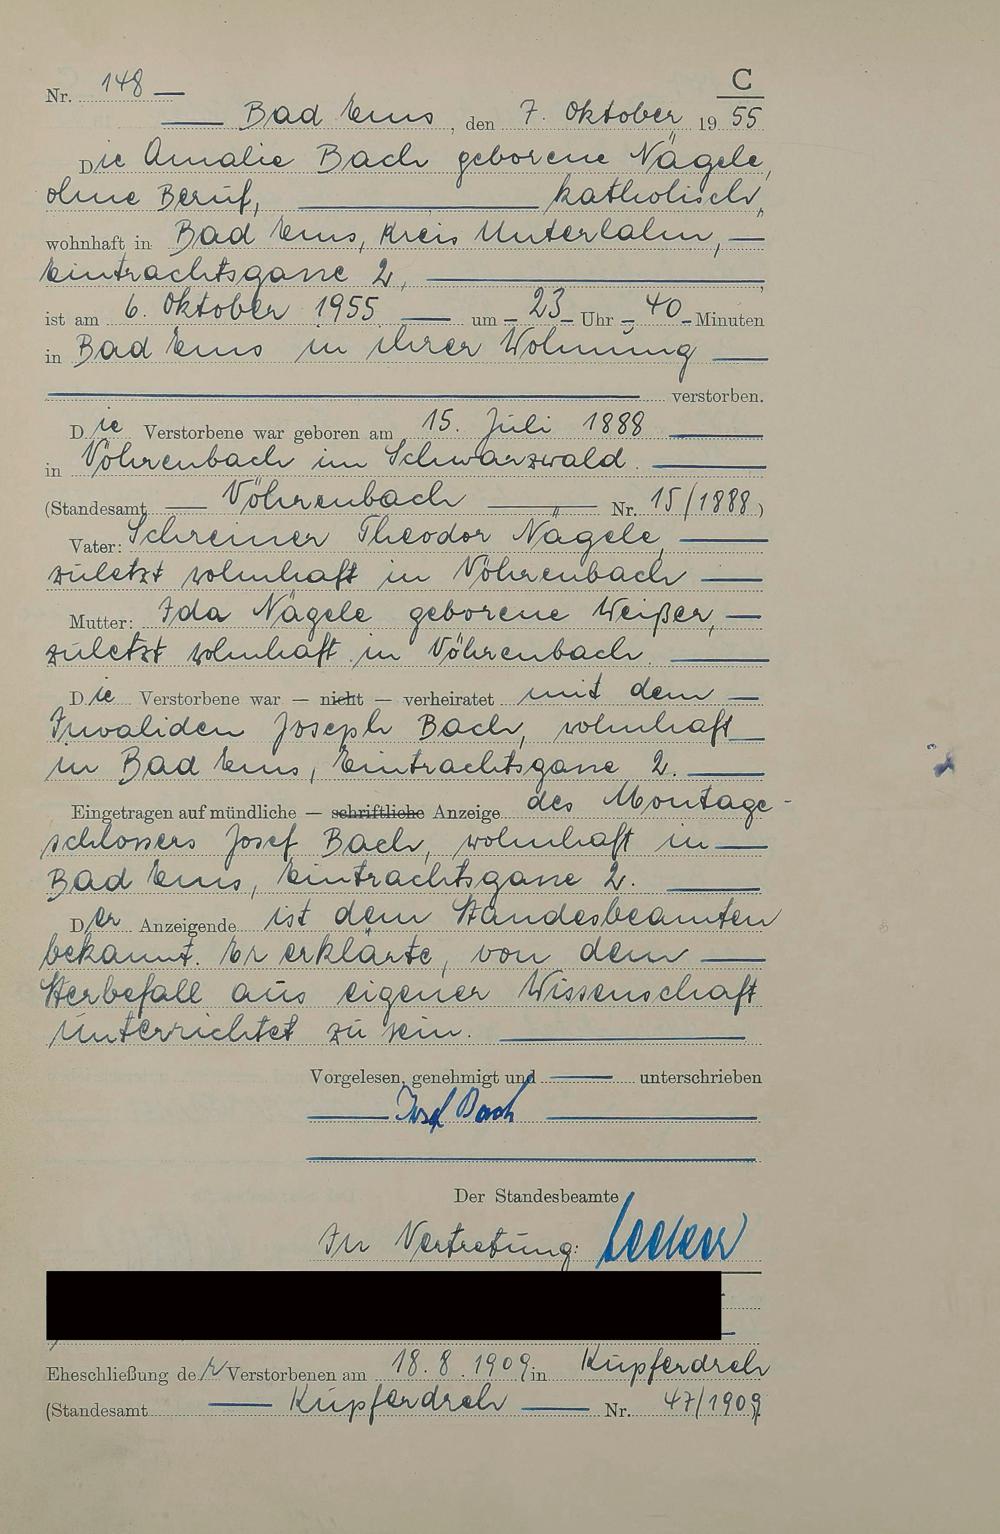 C
Nr. 148
Bad Ems, den 7. Oktober 1955
Die Amalie Bach geborene Nägele,
ohne Beruf, katholisch,
wohnhaft in Bad Ems, Kreis Unterlahn,
Eintrachtsgasse 2,
ist am 6. Oktober 1955 um 23 Uhr 40 Minuten
in Bad Ems in ihrer Wohnung
verstorben.
Die Verstorbene war geboren am 15. Juli 1888
in Vöhrenbach im Schwarzwald.
(Standesamt Vöhrenbach Nr. 15/1888)
Vater: Schreiner Theodor Nägele,
zuletzt wohnhaft in Vöhrenbach
Mutter: Ida Nägele geborene Weißer,
zuletzt wohnhaft in Vöhrenbach.
Die Verstorbene war — nicht — verheiratet mit dem
Invaliden Joseph Bach, wohnhaft
in Bad Ems, Eintrachtsgasse 2.
Eingetragen auf mündliche — schriftliche Anzeige des Montage-
schlossers Josef Bach, wohnhaft in
Bad Ems, Eintrachtsgasse 2.
Der Anzeigende ist dem Standesbeamten
bekannt. Er erklärte, von dem
Sterbefall aus eigener Wissenschaft
unterrichtet zu sein.
Vorgelesen, genehmigt und unterschrieben
Josef Bach
Der Standesbeamte
In Vertretung:
Eheschließung der Verstorbenen am 18.8.1909 in Kupferdreh
(Standesamt Kupferdreh Nr. 47/1909